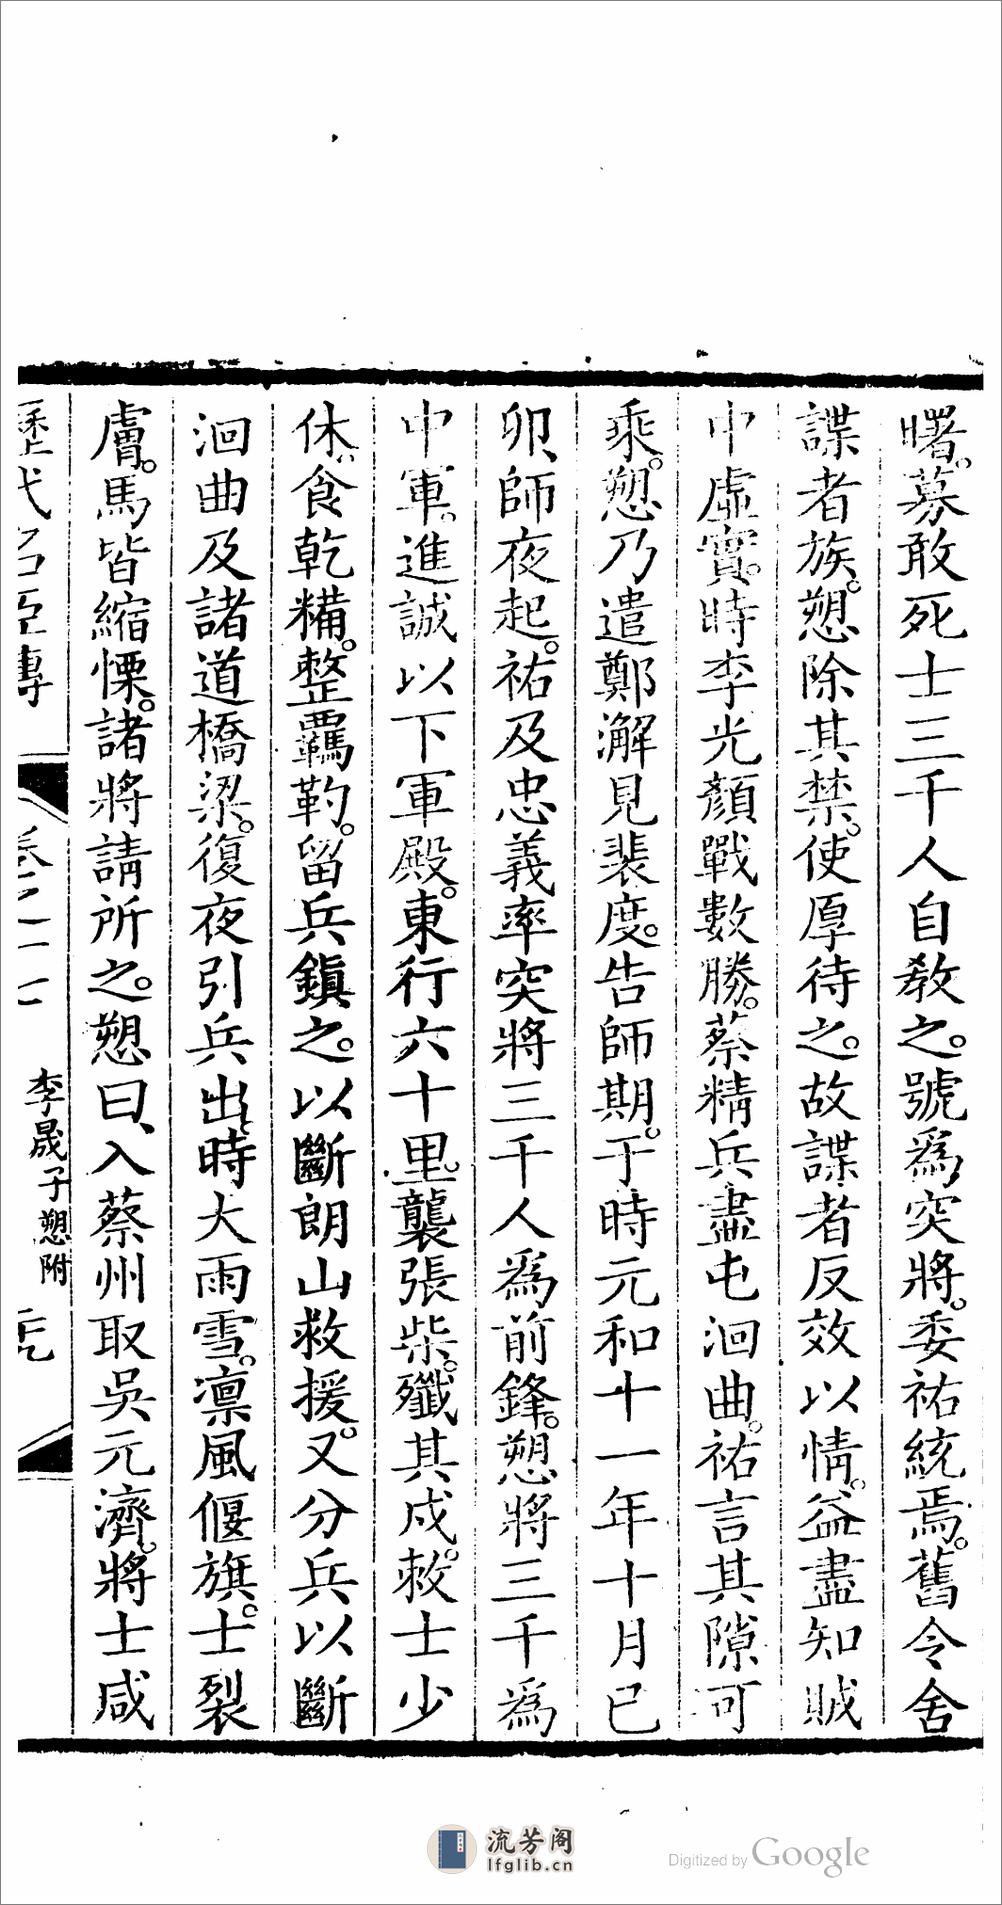 曙。募敢死士三千人自教之。號爲突將。委祐統焉。舊令舍
諜者族。愬除其禁。使厚待之。故諜者反效以情。益盡知賊
中虛實。時李光顏戰數勝。蔡精兵盡屯洄曲。祐言其隙可
乘。愬乃遣鄭澥見裴度。告師期。于時元和十一年十月已
卯、師夜起。祐及忠義率突將三千人爲前鋒。愬將三千爲
中軍。進誠以下軍殿。東行六十里。襲張柴。殲其戍。敕士少
休。食乾糒。整羈靮。留兵鎮之。以斷朗山救援。又分兵以斷
洄曲及諸道橋梁。復夜引兵出。時大雨雪。凛風偃旗。士裂
膚。馬皆縮慄。諸將請所之。愬曰、入蔡州取吳元濟。將士咸
歷代名臣傳
李晟子愬附
流芳阁
lfglib.cn
Digitized by Google